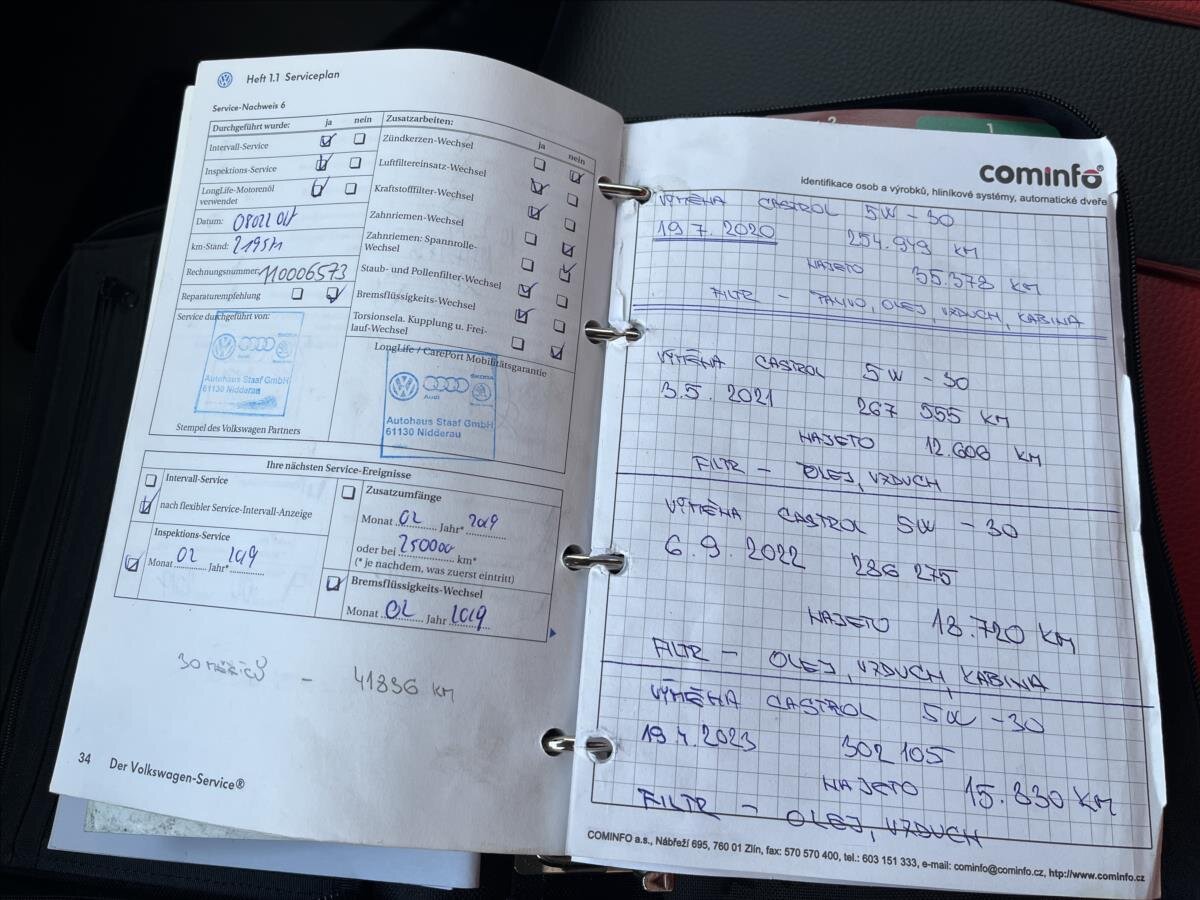 Heft 1.1 Serviceplan
Service-Nachweis 6
Durchgeführt wurde: ja nein
Intervall-Service
Inspektions-Service
LongLife-Motorenöl
verwendet
Datum:
km-Stand:
Rechnungsnummer 110006573
Reparaturempfehlung
Service durchgeführt von:
Audi
Autohaus Staaf GmbH
61130 Nidderau
Stempel des Volkswagen Partners
Zusatzarbeiten:
ja nein
Zündkerzen-Wechsel
Luftfiltereinsatz-Wechsel
Kraftstofffilter-Wechsel
Zahnriemen-Wechsel
Zahnriemen: Spannrolle-
Wechsel
Staub- und Pollenfilter-Wechsel
Bremsflüssigkeits-Wechsel
Torsionsela. Kupplung u. Frei-
lauf-Wechsel
LongLife / CarePort Mobilitätsgarantie
Audi
Autohaus Staaf GmbH
61130 Nidderau
Ihre nächsten Service-Ereignisse
Intervall-Service
nach flexibler Service-Intervall-Anzeige
Inspektions-Service
Monat 02 Jahr* 2019
Zusatzumfänge
Monat 02 Jahr* 2019
oder bei 250000 km*
(* je nachdem, was zuerst eintritt)
Bremsflüssigkeits-Wechsel
Monat 02 Jahr 2019
30 MĚSÍCŮ - 41836 KM
34 Der Volkswagen-Service®
1
cominfo®
identifikace osob a výrobků, hliníkové systémy, automatické dveře
VÝMĚNA CASTROL 5W-30
19.7.2020 254.949 KM
NAJETO 35.378 KM
FILTR - PALIVO, OLEJ, VZDUCH, KABINA
VÝMĚNA CASTROL 5W 30
3.5.2021 267 555 KM
NAJETO 12.606 KM
FILTR - OLEJ, VZDUCH
VÝMĚNA CASTROL 5W-30
6.9.2022 286 275
NAJETO 18.720 KM
FILTR - OLEJ, VZDUCH, KABINA
VÝMĚNA CASTROL 5W-30
19.4.2023 302 105
NAJETO 15.830 KM
FILTR - OLEJ, VZDUCH
COMINFO a.s., Nábřeží 695, 760 01 Zlín, fax: 570 570 400, tel.: 603 151 333, e-mail: cominfo@cominfo.cz, http://www.cominfo.cz